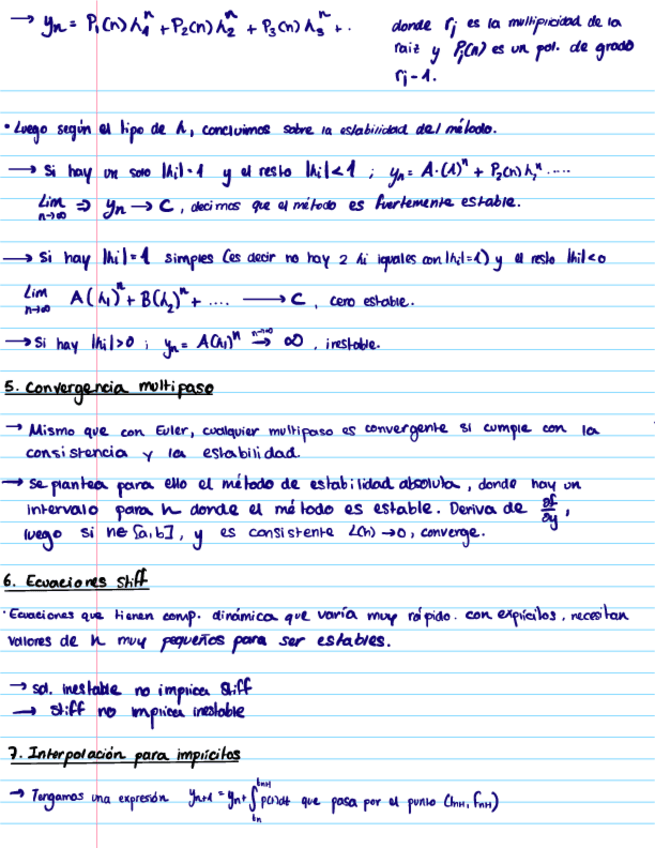 → yn = P₁(n) λ₁ⁿ + P₂(n) λ₂ⁿ + P₃(n) λ₃ⁿ + .
donde rj es la multiplicidad de la
raiz y Pj(n) es un pol. de grado
rj - 1.
• Luego según el tipo de λ, concluimos sobre la estabilidad del método.
→ Si hay un solo |λi| = 1 y el resto |λi| < 1 ; yn = A·(1)ⁿ + P₂(n) λ₂ⁿ ....
Lim n→∞ ⇒ yn → C, decimos que el método es fuertemente estable.
→ Si hay |λi| = 1 simples (es decir no hay 2 λi iguales con |λi| = 1) y el resto |λi| < 0
Lim n→∞ A(λ₁)ⁿ + B(λ₂)ⁿ + .... → C, cero estable.
→ Si hay |λi| > 0 ; yn = A(λ₁)ⁿ n→∞ → ∞, inestable.
5. Convergencia multipaso
→ Mismo que con Euler, cualquier multipaso es convergente si cumple con la
consistencia y la estabilidad
→ Se plantea para ello el método de estabilidad absoluta, donde hay un
intervalo para h donde el método es estable. Deriva de ∂f/∂y,
luego si h∈[a,b], y es consistente L(h) → 0, converge.
6. Ecuaciones Stiff
· Ecuaciones que tienen comp. dinámica que varía muy rápido. con explícitos, necesitan
valores de h muy pequeños para ser estables.
→ sol. inestable no implica Stiff
→ Stiff no implica inestable
7. Interpolación para implícitos
→ Tengamos una expresión yn+1 = yn + ∫tn tn+1 p(t)dt que pasa por el punto (tn+1, fn+1)